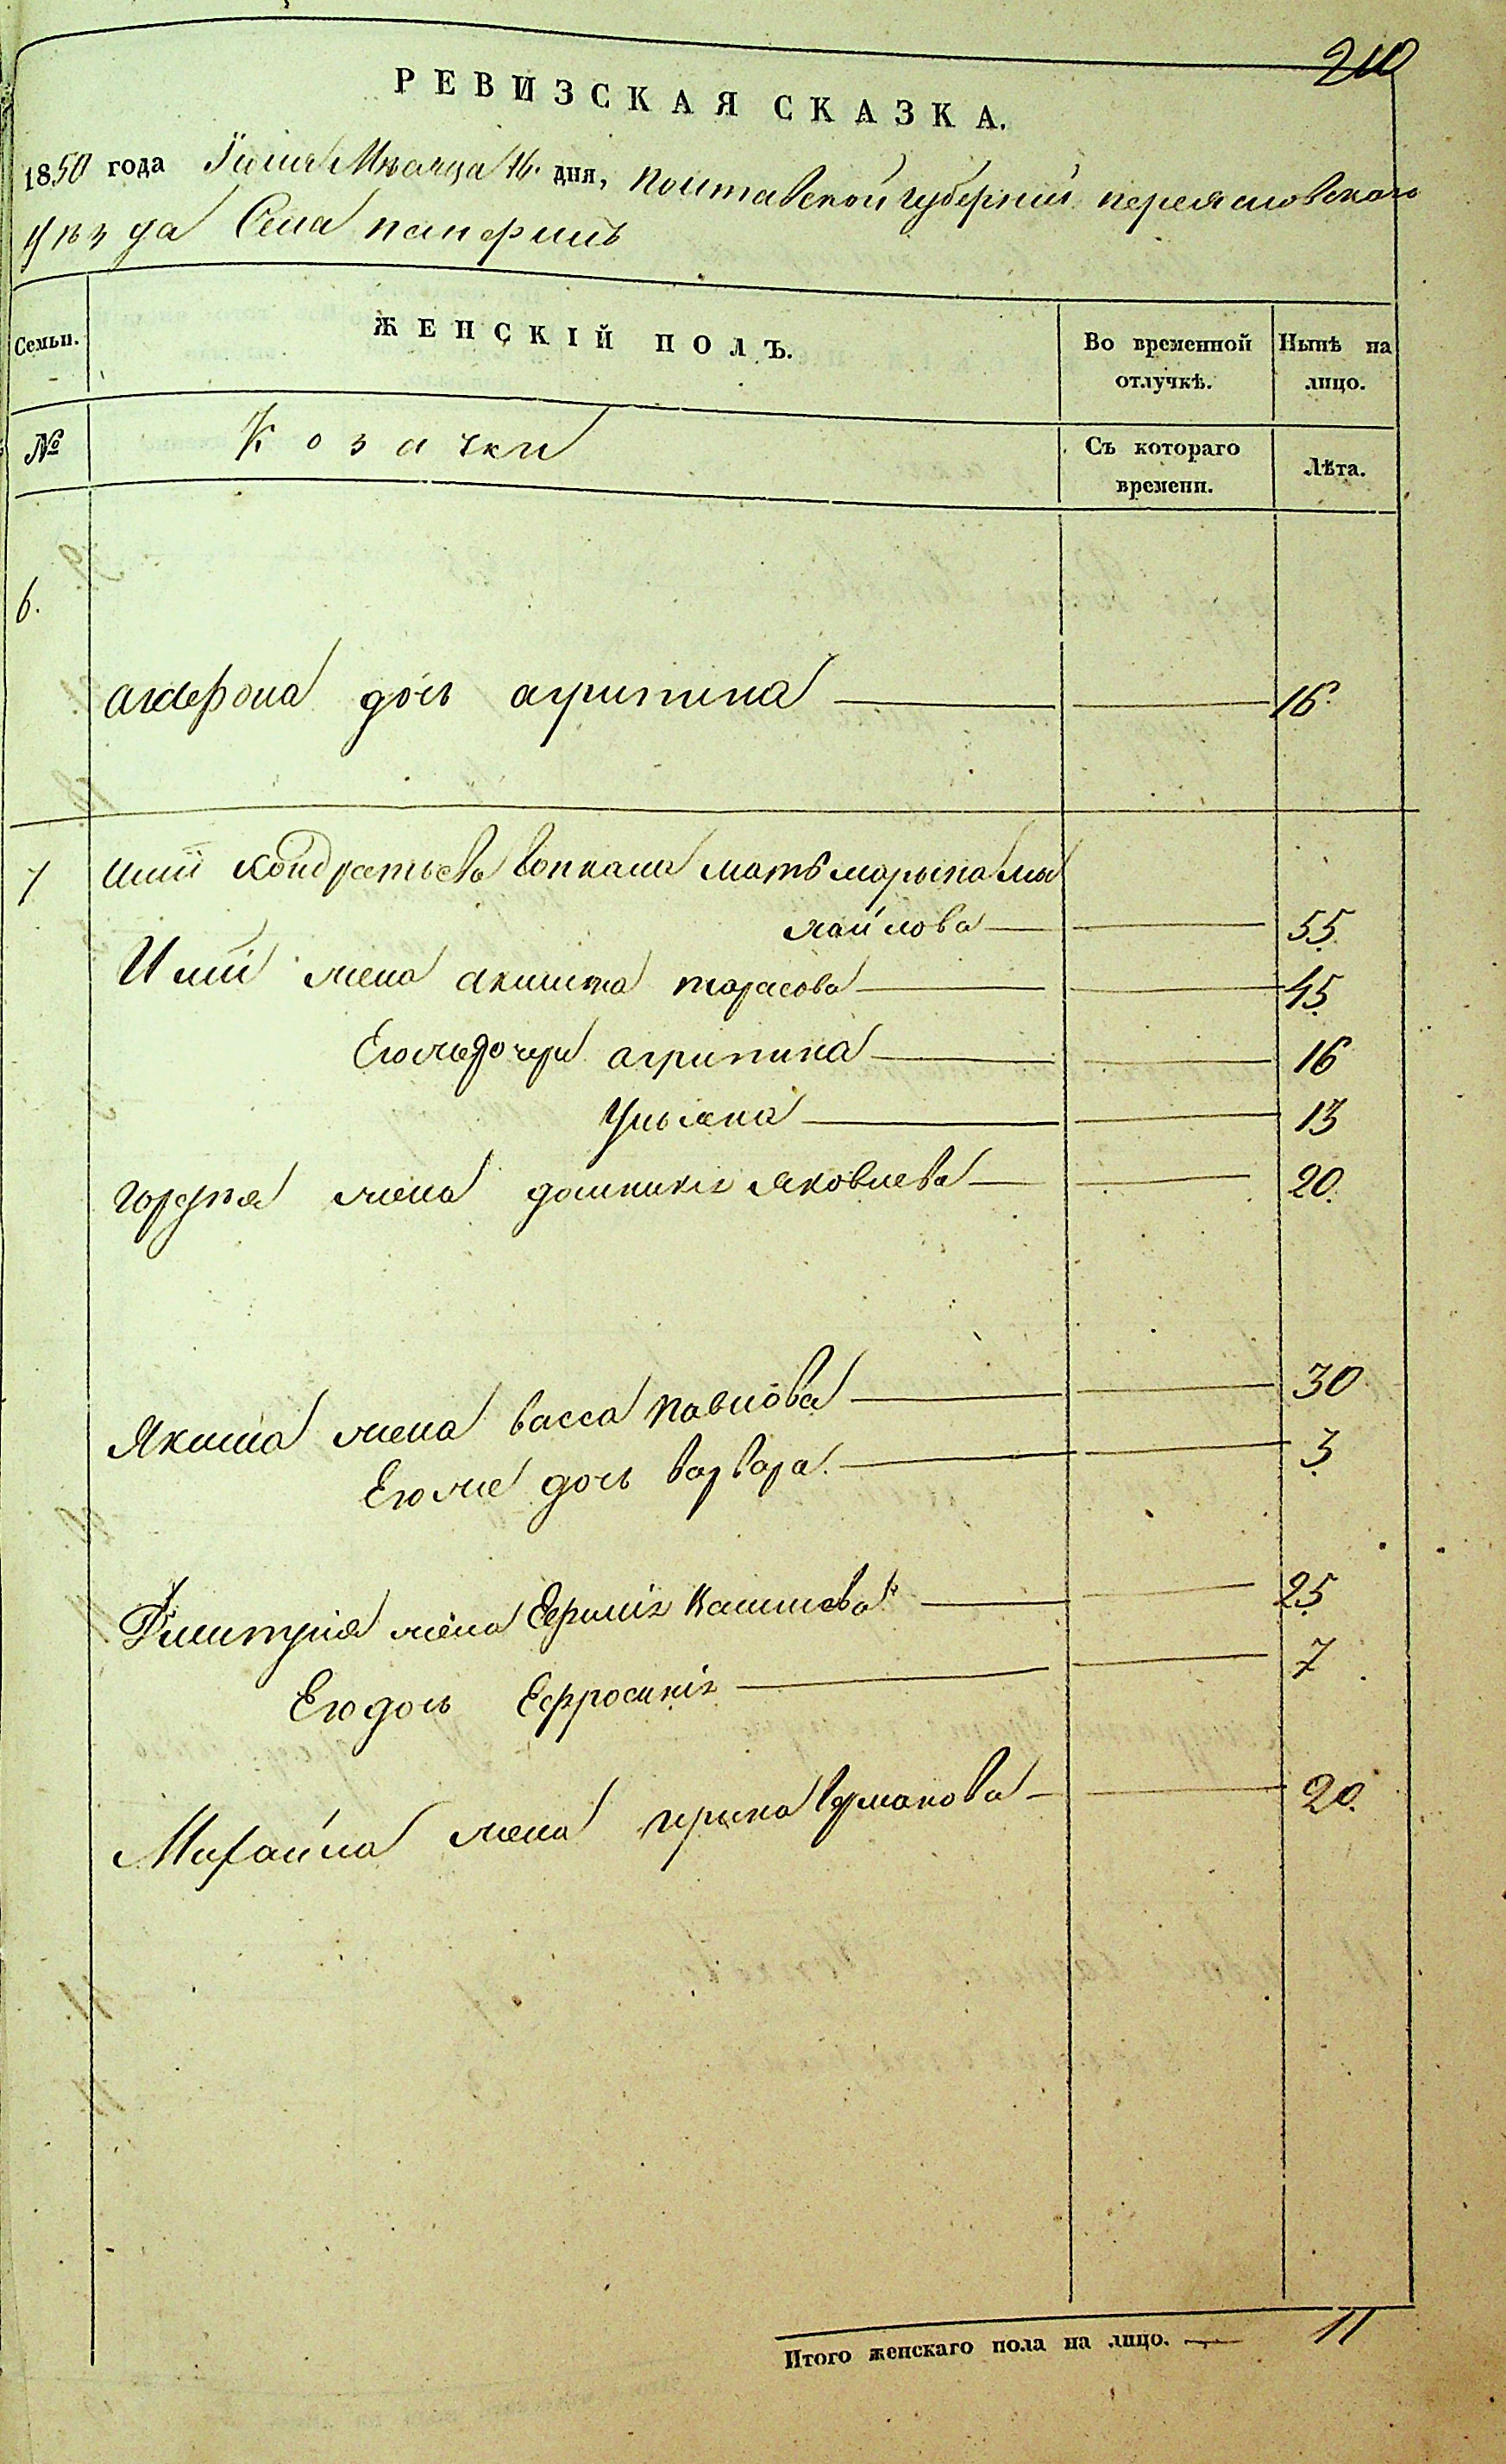 210
РЕВИЗСКАЯ СКАЗКА.
1850 года Іюля Мѣсяца 16. дня, Полтавской губерніи переясловского
уѣзда Села панфилъ
Семьи. ЖЕНСКІЙ ПОЛЪ. Во временной отлучкѣ. Нынѣ на лицо.
№ Козачки Съ котораго времени. Лѣта.
6.
дочь агрипина 16
7 Илии Кондратьева мать марына ми
хайлова 55
Илии жена акилина тарасова 45
Его же дочери агрипина 16
Ульяна 13
гордѣя жена домникія яковлева 20.
Якима жена васса павлова 30
Его же дочь варвара. 3
Димитрія жена 25
Его дочь Ефросинія 7
Михайла жена ирина 20.
Итого женскаго пола на лицо. 11